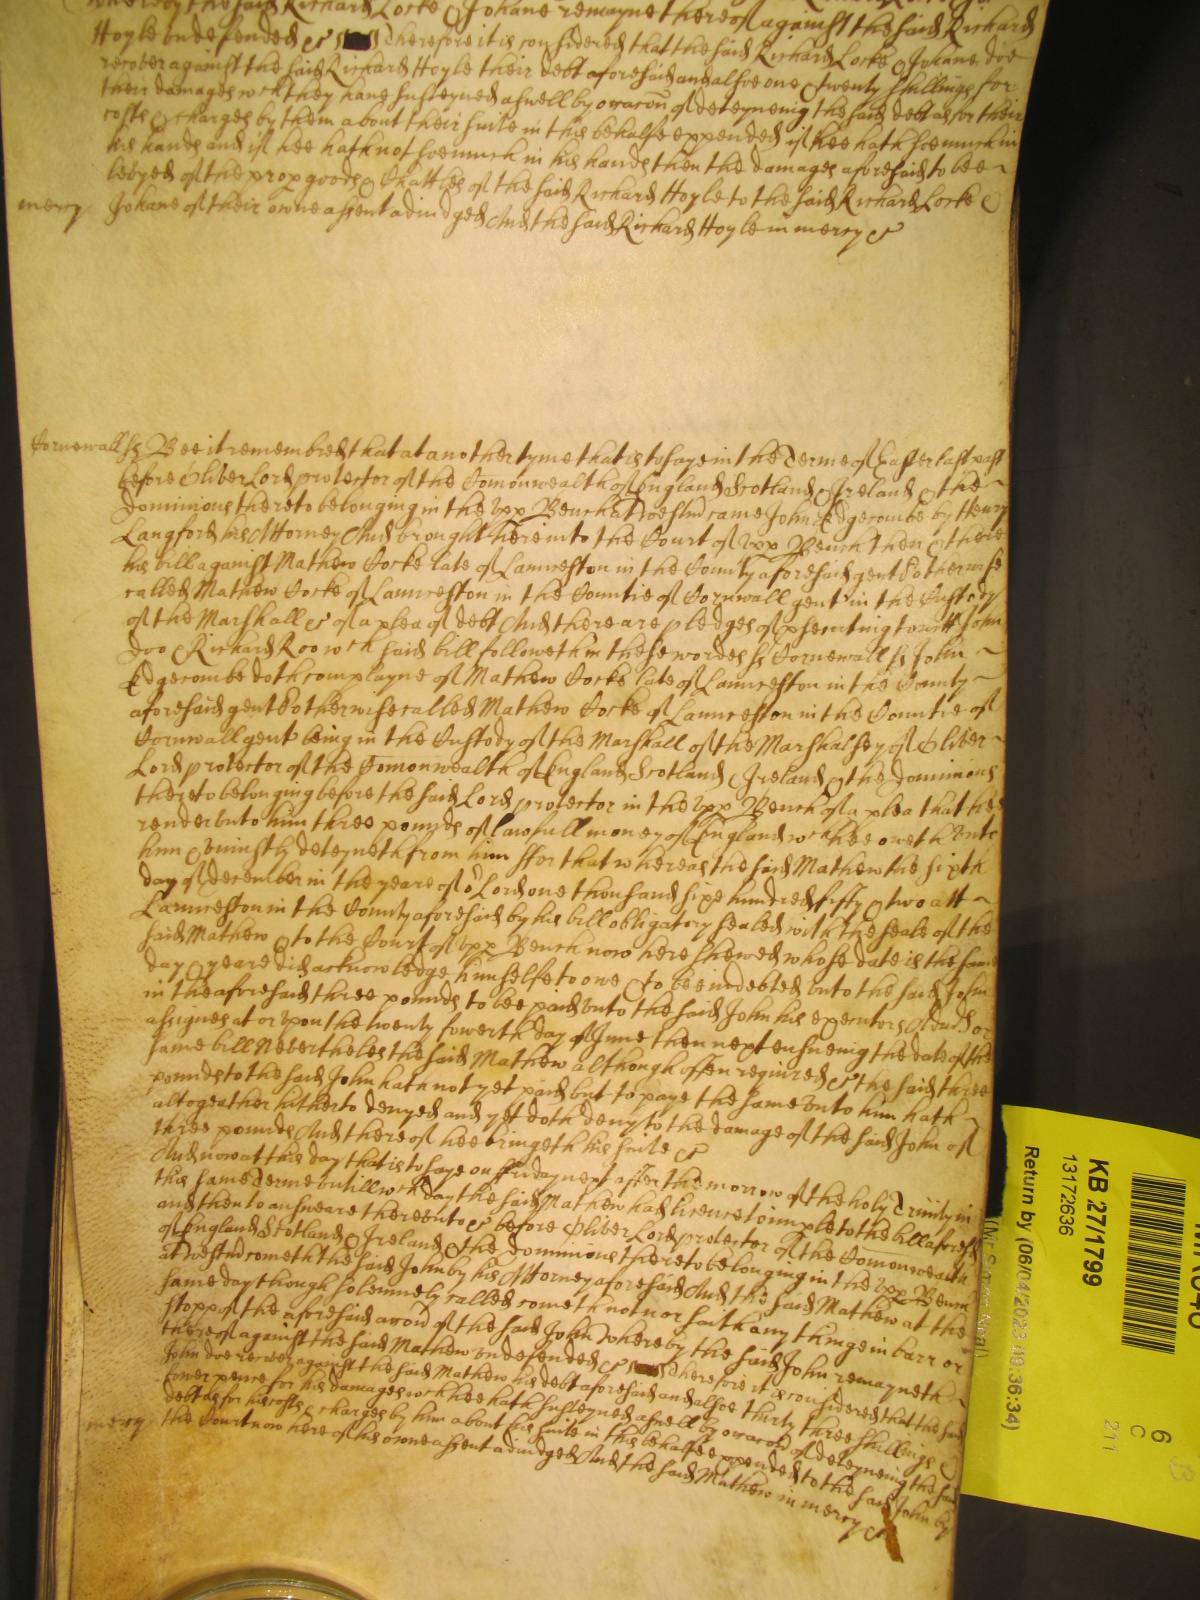 whereby the said Richard Locke & Johane remayne thereof against the said Richard
Hoyle undefended &c Therefore it is considered that the said Richard Locke & Johane doe
recover against the said Richard Hoyle their debt aforesaid and alsoe one & twenty shillings for
their damages wch they have susteyned aswell by occacon of deteyneing the said debt as for their
costs & charges by them about their suite in this behalfe expended if hee hath soe much in
his hands and if hee hath not soe much in his hands then the damages aforesaid to bee
levyed of the propr goods & Chattles of the said Richard Hoyle to the said Richard Locke &
mercy Johane of their owne assent adiudged And the said Richard Hoyle in mercy &c
Cornewall ss Bee it remembred that at another tyme that is to saye in the Terme of Easter last past
before Oliver Lord protector of the Comonwealth of England Scotland & Ireland & the
dominions thereto belonging in the vpp Bench at Westmr came John Edgecombe by Henry
Langford his Attorney And brought here into the Court of vpp Bench then & there
his bill against Mathew Cocke late of Launceston in the County aforesaid gent otherwise
called Mathew Cocke of Launceston in the Countie of Cornwall gent in the Custody
of the Marshall &c of a plea of debt And there are pledges of psecuting to witt John
Doo & Richard Roo wch said bill followeth in these wordes ss Cornewall ss John
Edgecombe doth complayne of Mathew Cocke late of Launceston in the County
aforesaid gent otherwise called Mathew Cocke of Launceston in the Countie of
Cornwall gent being in the Custody of the Marshall of the Marshalsey of Oliver
Lord protector of the Comonwealth of England Scotland & Ireland & the dominions
thereto belonging before the said Lord protector in the vpp Bench of a plea that hee
render vnto him three pounds of lawfull money of England wch hee oweth vnto
him & uniustly deteyneth from him ffor that whereas the said Mathew the sixth
day of december in the yeare of or Lord one thousand sixe hundred fifty & two att
Launceston in the County aforesaid by his bill obligatory sealed with the seale of the
said Mathew & to the Court of vpp Bench now here shewed whose date is the same
day & yeare did acknowledge himselfe to owe & to bee indebted vnto the said John
in the aforesaid three pounds to bee paid vnto the said John his executors or
assignes at or vpon the twenty fowerth day of June then next ensueing the date of the
same bill Neverthelesse the said Mathew although often required &c the said three
pounds to the said John hath not yet paid but to paye the same vnto him hath
altogeather hitherto denyed and yet doth deny to the damage of the said John of
three pounds And thereof hee bringeth his suite &c
And now at this day that is to saye on ffriday next after the morrow of the holy Trinity in
this same Terme vntill wch day the said Mathew had licence to imple to the bill aforesd
and then to answeare therevnto &c before Oliver Lord protector of the Comonwealth
of England Scotland & Ireland & the dominions thereto belonging in the vpp Bench
at Westmr cometh the said John by his Attorney aforesaid And the said Mathew at the
same day though solemnely called cometh not nor saith any thinge in barr or
stopp of the aforesaid accon of the said John Whereby the said John remayneth
thereof against the said Mathew vndefended &c Therefore it is considered that the said
John doe recover against the said Mathew his debt aforesaid and alsoe thirty three shillings &
fower pence for his damages wch hee hath susteyned aswell by occacon of deteyneing the said
debt as for his costs & charges by him about his suite in this behalfe expended to the said John by
mercy the Court now here of his owne assent adiudged And the said Mathew in mercy &c
KB 27/1799
13172636
Return by (06/04/2023 08:36:34)
6
C
211